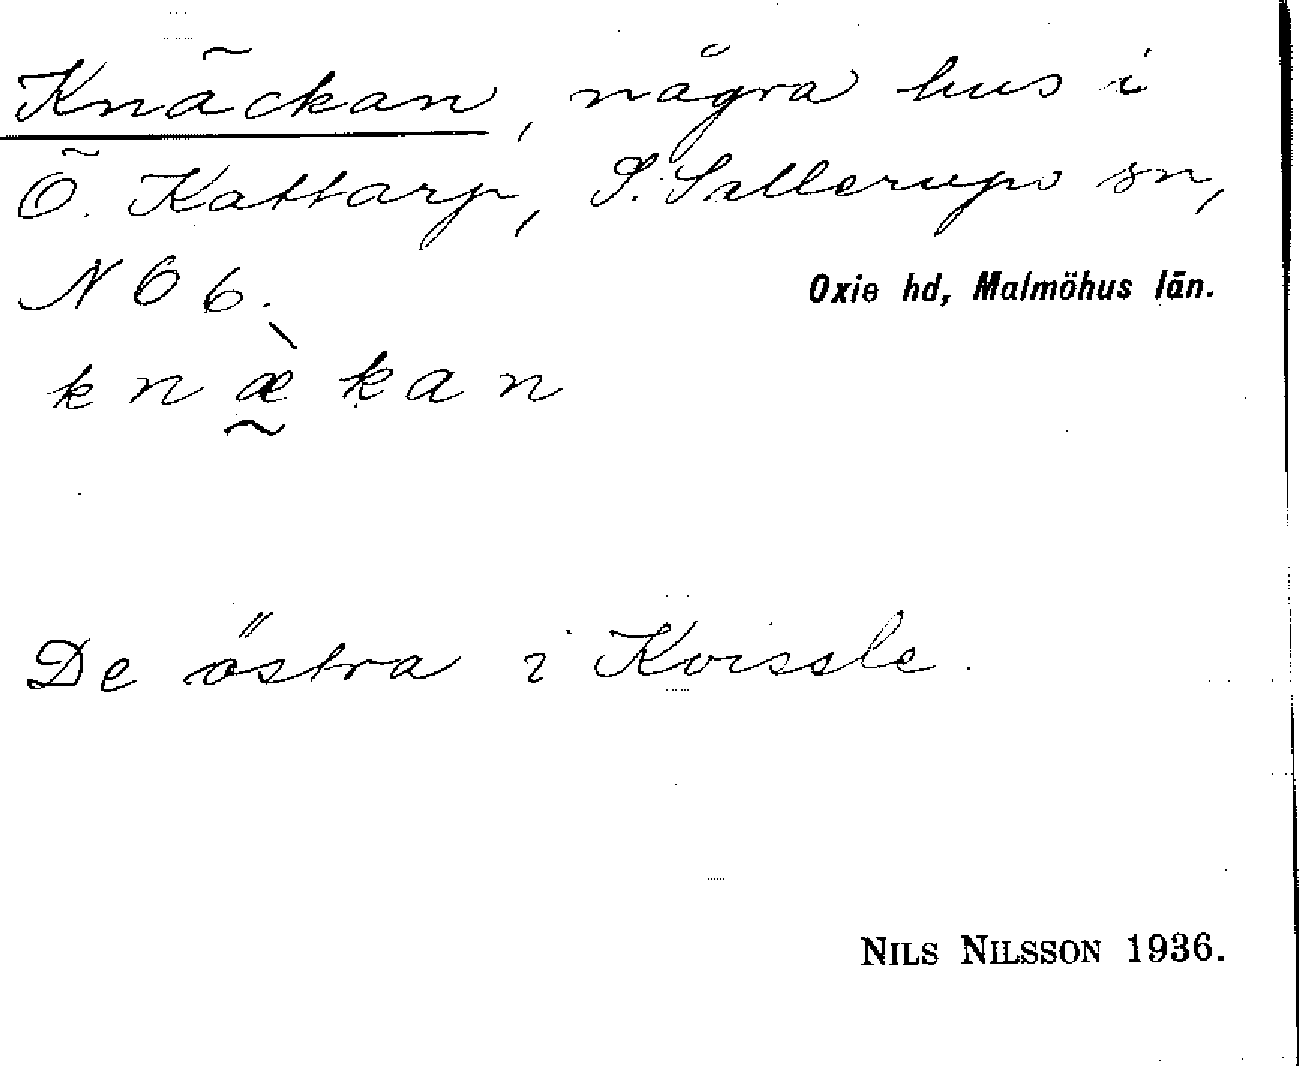 Knäckan, några hus i
Ö. Kattarp, S. Sallerups sn,
NO 6.
Oxie hd, Malmöhus län.
k n æ̰̀ k a n
De östra i Kvissle.
NILS NILSSON 1936.